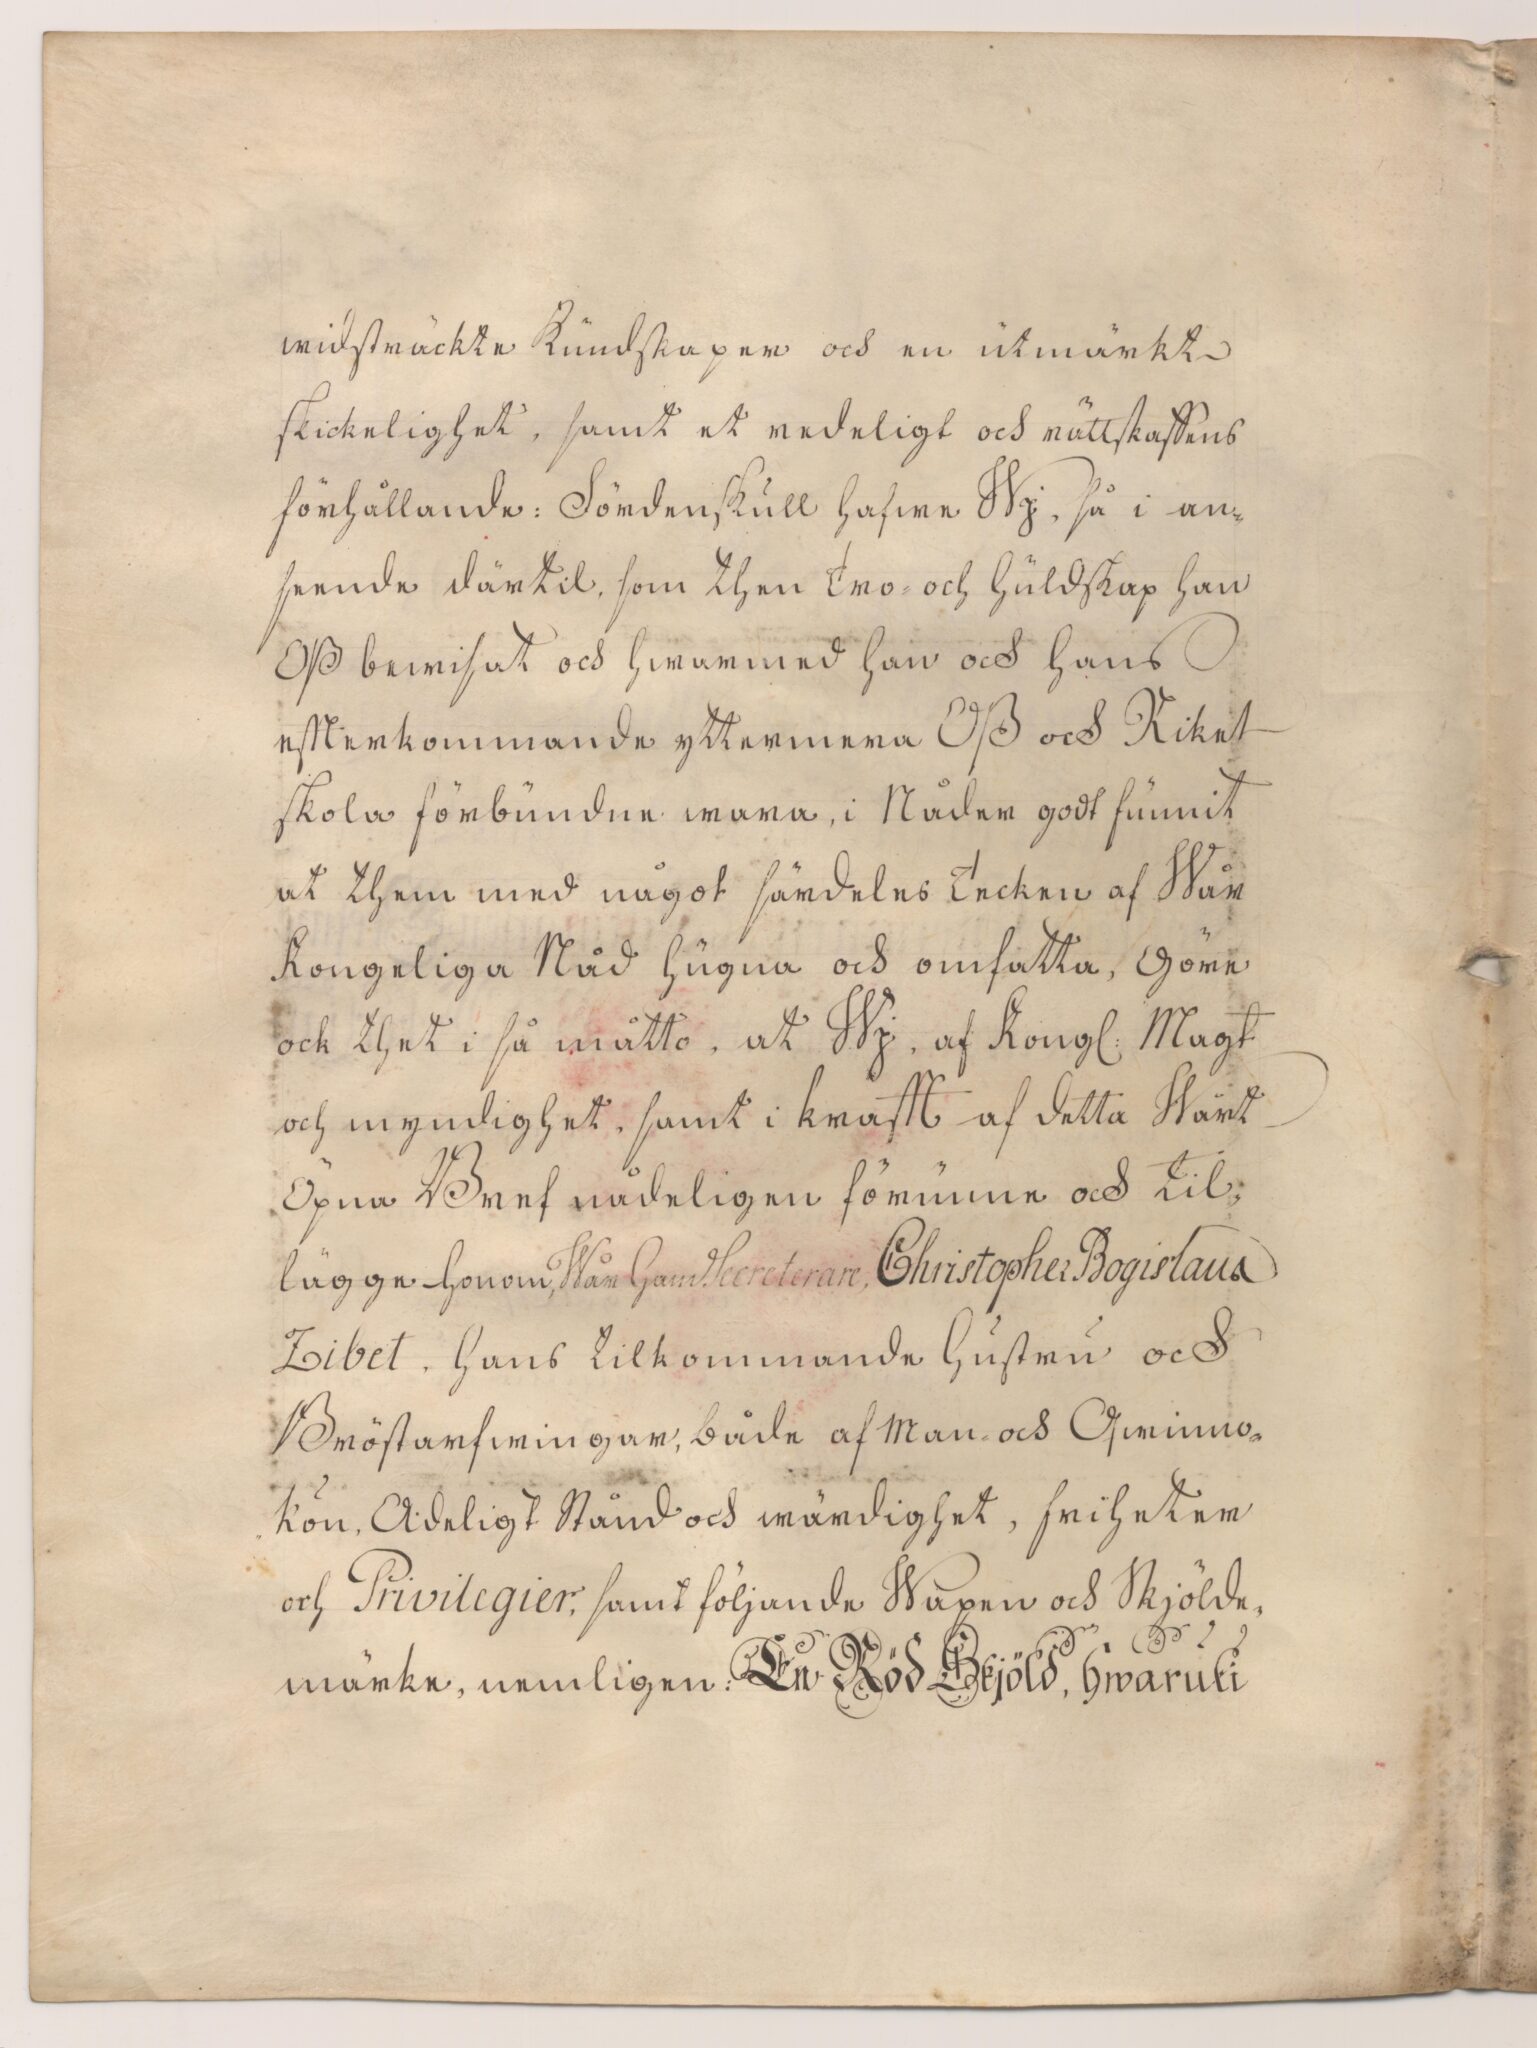 widsträckte Kundskaper och en utmärkt
skickelighet, samt et redeligt och rättskaffens
förhållande: Fördenskull hafwe Wj, så i an-
seende därtil, som then Tro- och huldskap han
Oß bewisat och hwarmed han och hans
efterkommande yttermera Oß och Riket
skola förbundne wara, i Nåder godt funnit
at them med något särdeles Tecken af Wår
Kongeliga Nåd hugna och omfatta, Göre
ock thet i så matto, at Wj, af Kongl: Magt
och myndighet, samt i kraft af detta Wårt
Öpna Bref nådeligen förunne och til-
lägge honom, Wår HandSecreterare, Christopher Bogislaus
Zibet, hans tilkommande hustru och
Bröstarfwingar, både af Man- och Qwinno-
kön, Adeligt Stånd och wärdighet, friheter
och Privilegier, samt följande Wapen och Skjölde-
märke, nemligen: En Röd Skjöld, hwaruti